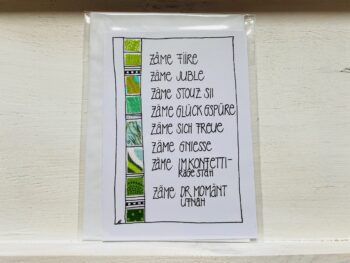 ZÄME FIIRE
ZÄME JUBLE
ZÄME STOUZ SII
ZÄME GLÜCK GSPÜRE
ZÄME SICH FREUE
ZÄME GNIESSE
ZÄME IM KONFETTI-
RÄGE STAH
ZÄME DR MOMÄNT
UFNÄH